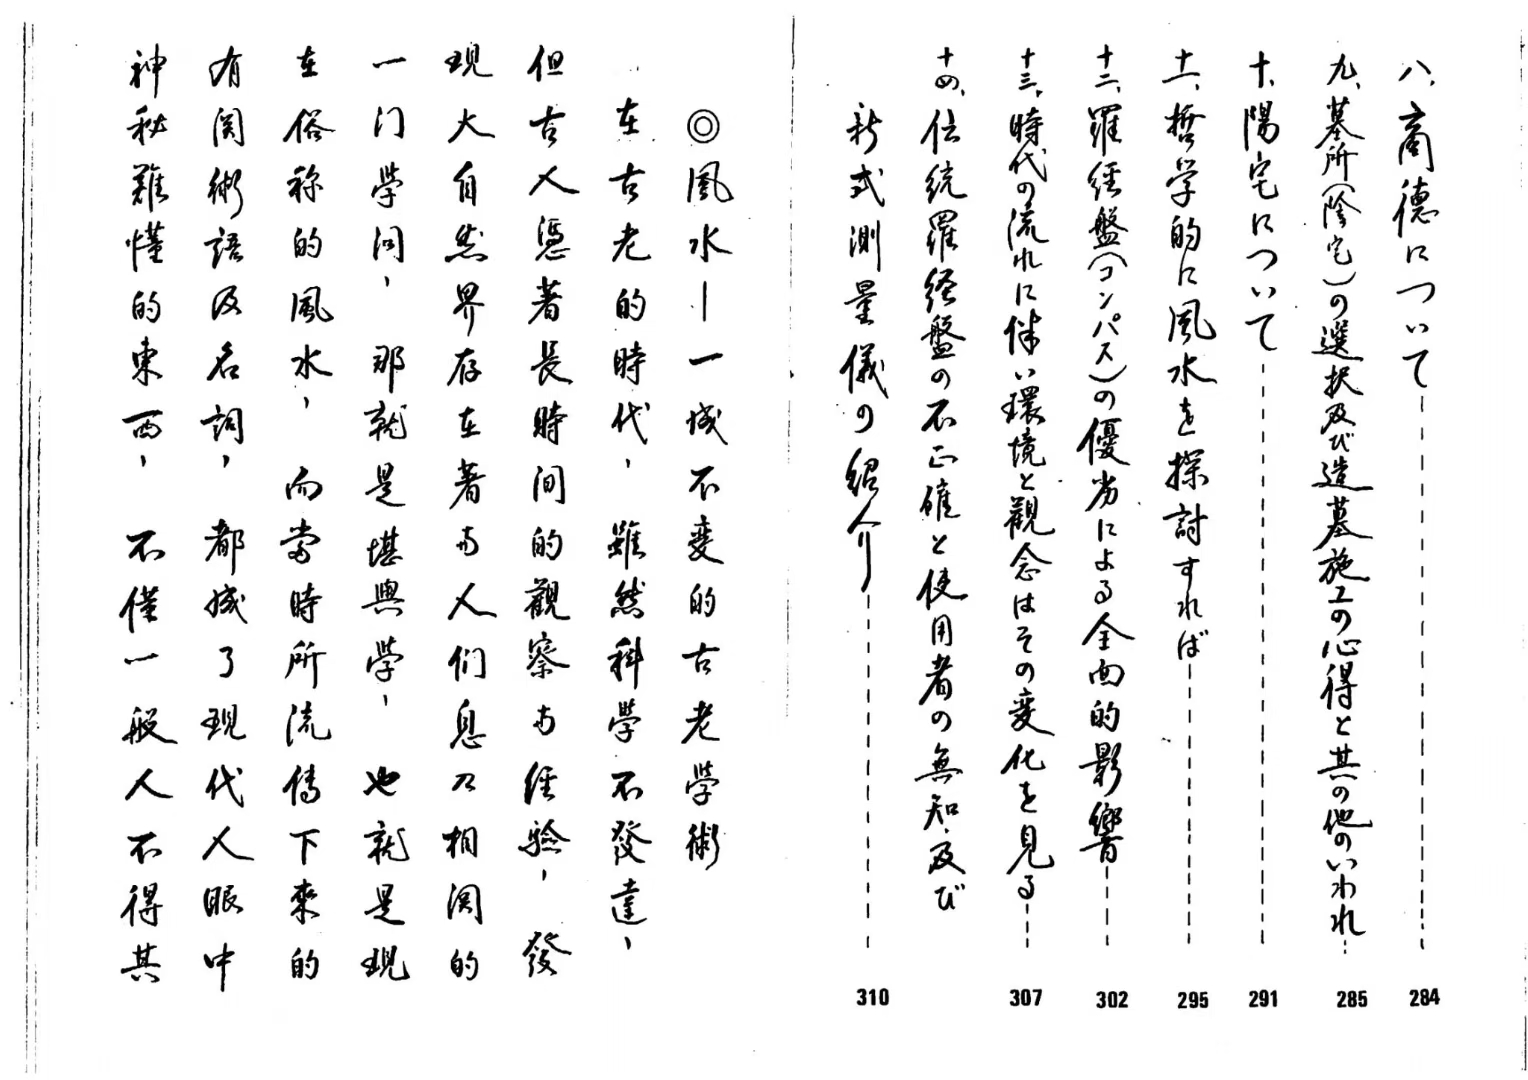 八、商德について 284
九、墓所(陰宅)の選択及び造墓施工の心得と其の他のいわれ 285
十、陽宅について 291
十一、哲学的に風水を探討すれば 295
十二、羅経盤(コンパス)の優劣による全面的影響 302
十三、時代の流れに伴い環境と観念はその変化を見る 307
十四、伝統羅経盤の不正確と使用者の無知及び
新式測量儀の紹介 310
◎風水—一成不變的古老學術
在古老的時代，雖然科學不發達，
但古人憑著長時间的觀察与经驗，發
現大自然界存在著与人们息息相関的
一门學问，那就是堪輿學，也就是現
在俗称的風水，而當時所流傳下來的
有関術語及名詞，都成了現代人眼中
神秘難懂的東西，不僅一般人不得其